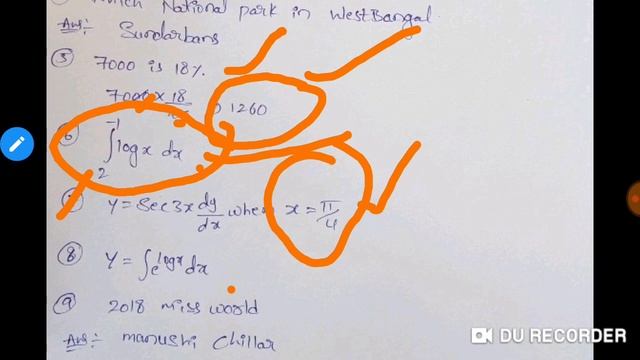 National park in WestBangal
Ans:- Sundarbans
⑤ 7000 is 18%.
7000 × 18 1260
⑥ ∫ -1 2 log x dx
y = Sec3x dy/dx when x = π/4
⑧ y = ∫ e^logx dx
⑨ 2018 miss world
Ans:- manushi Chillar
DU RECORDER